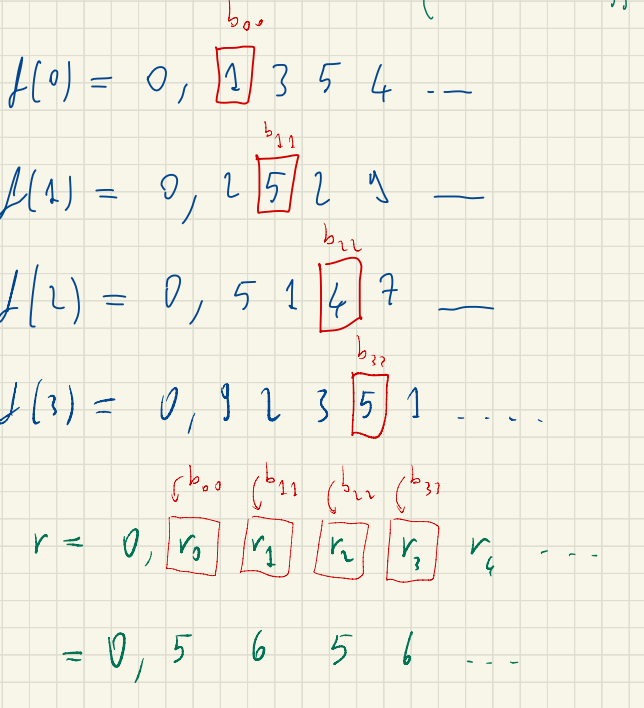 b₀₀
f(0) = 0, 1 3 5 4 ...
b₁₁
f(1) = 0, 2 5 2 9 —
b₂₂
f(2) = 0, 5 1 4 7 —
b₃₃
f(3) = 0, 9 2 3 5 1 ....
b₀₀ b₁₁ b₂₂ b₃₃
r = 0, r₀ r₁ r₂ r₃ r₄ ...
= 0, 5 6 5 6 ...